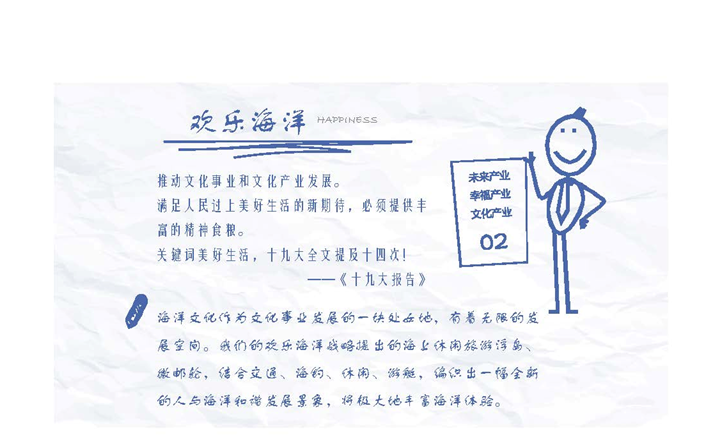 欢乐海洋 HAPPINESS
推动文化事业和文化产业发展。
满足人民过上美好生活的新期待，必须提供丰
富的精神食粮。
关键词美好生活，十九大全文提及十四次！
——《十九大报告》
未来产业
幸福产业
文化产业
02
海洋文化作为文化事业发展的一块处女地，有着无限的发
展空间。我们的欢乐海洋战略提出的海上休闲旅游浮岛、
微邮轮，结合交通、海钓、休闲、游艇，编织出一幅全新
的人与海洋和谐发展景象，将极大地丰富海洋体验。